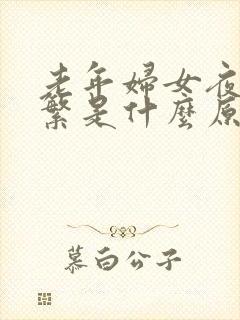 老年婦女夜
繁是什麼原
慕白公子